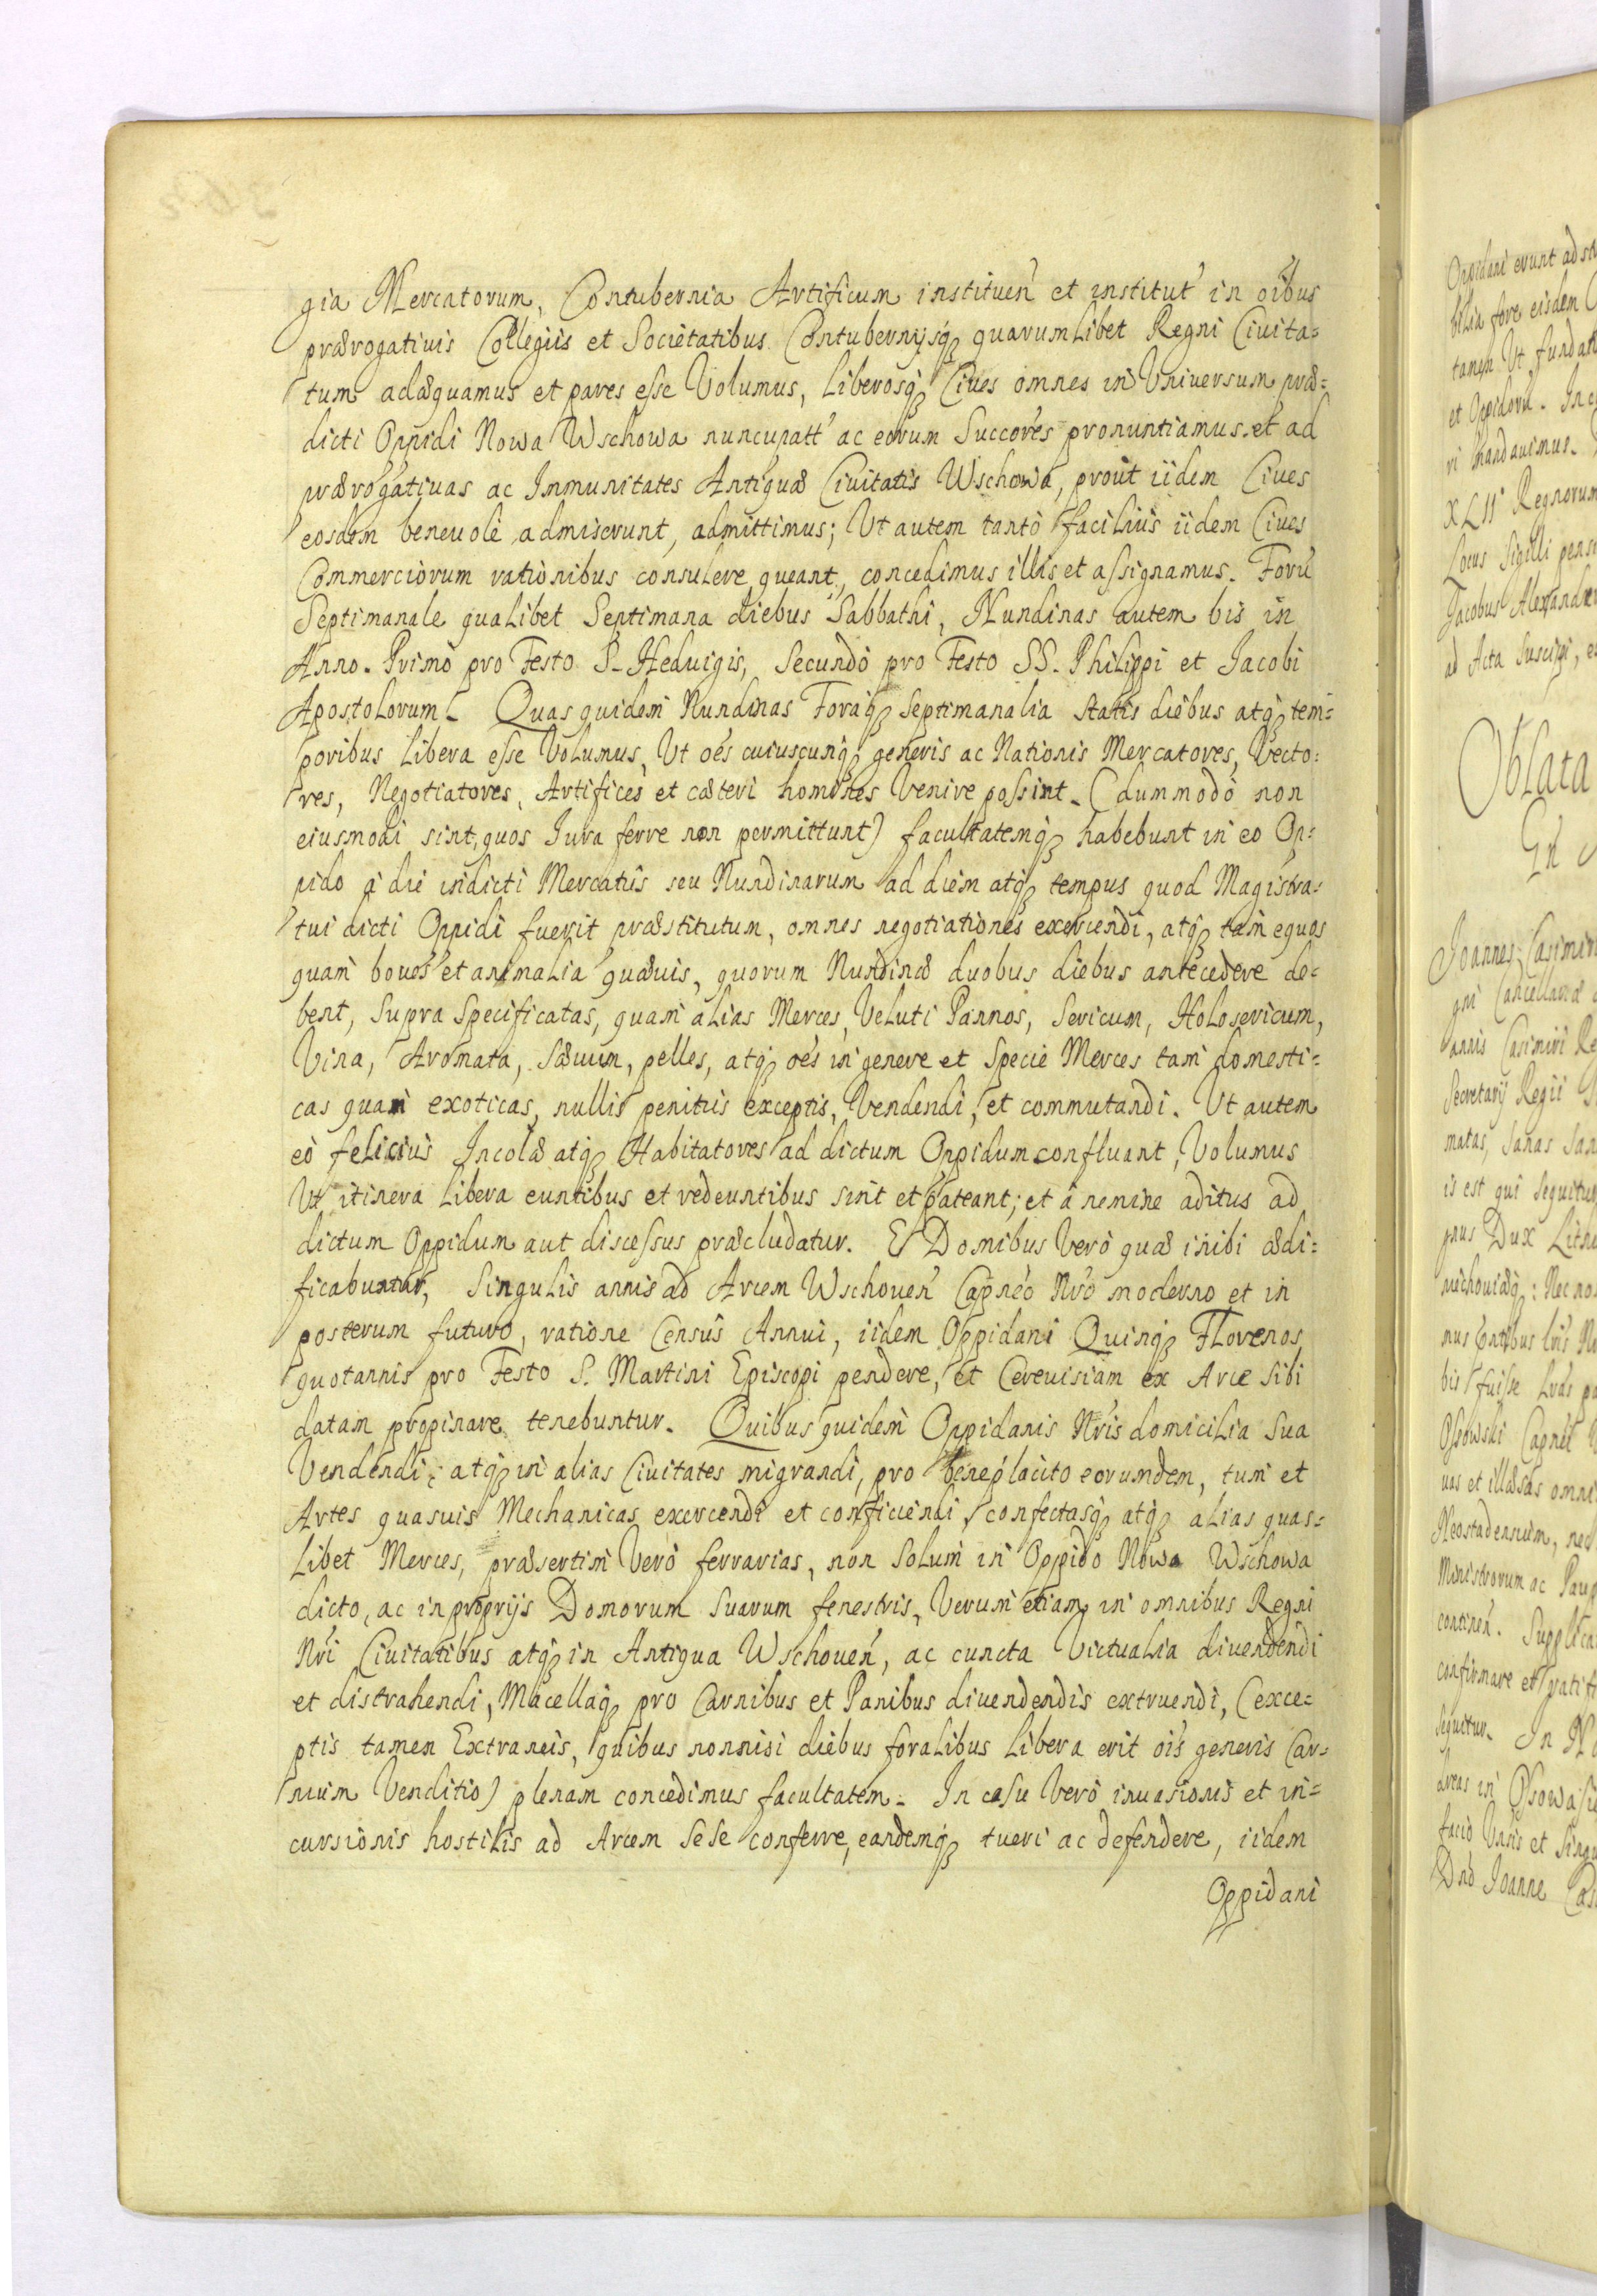 gia Mercatorum, Contubernia Artificum instituen̄ et institut̄ in oībus
prærogatiuis Collegiis et Societatibus Contubernijsq3 quarumlibet Regni Ciuita=
tum adæquamus et pares eſse Volumus, Liberosq3 Ciues omnes in Vniuersum præ=
dicti Oppidi Nowa Wschowa nuncupatt̄ ac eorum Succōres pronuntiamus. et ad
prærogatiuas ac Immunitates Antiquæ Ciuitatis Wschowa, prout iidem Ciues
eosdem beneuolè admiserunt, admittimus; Vt autem tantò faciliùs iidem Ciues
Commerciorum rationibus consulere queant, concedimus illis et aſsignamus. Forū
Septimanale qualibet Septimana diebus Sabbathi, Nundinas autem bis in
Anno. Primò pro Festo S. Heduigis, Secundò pro Festo SS. Philippi et Jacobi
Apostolorum. Quas quidem Nundinas Foraq3 Septimanalia statis diebus atq3 tem=
poribus libera eſse Volumus, Vt oēs cuiuscunq3 generis ac Nationis Mercatores, Vecto=
res, Negotiatores, Artifices et cæteri homines Venire poſsint. (dummodò non
eiusmodi sint, quos Jura ferre non permittunt) facultatemq3 habebunt in eo Op=
pido à die indicti Mercatûs seu Nundinarum ad diem atq3 tempus quod Magistra=
tui dicti Oppidi fuerit præstitutum, omnes negotiationes exercendi, atq3 tam equos
quam boues et animalia quæuis, quorum Nundinæ duobus diebus antecedere de=
bent, Supra Specificatas, quam alias Merces, Veluti Pannos, Sericum, Holosericum,
Vina, Aromata, Sæuum, pelles, atq3 oēs in genere et Specie Merces tam domesti=
cas quam exoticas, nullis penitùs exceptis, Vendendi, et commutandi. Vt autem
eò feliciùs Incolæ atq3 Habitatores ad dictum Oppidum confluant, Volumus
Vt itinera libera euntibus et redeuntibus sint et pateant; et à nemine aditus ad
dictum Oppidum aut disceſsus præcludatur. E Domibus Verò quæ inibi ædi=
ficabuntur, Singulis annis ad Arcem Wschouen̄ Capnēo Nrō moderno et in
posterum futuro, ratione Censûs Annui, iidem Oppidani Quinq3 Florenos
quotannis pro Festo S. Martini Episcopi pendere, et Cereuisiam ex Arce Sibi
datam propinare tenebuntur. Quibus quidem Oppidanis Nrīs domicilia Sua
Vendendi, atq3 in alias Ciuitates migrandi, pro beneplacito eorumdem, tum et
Artes quasuis Mechanicas exercendi et conficiendi, confectasq3 atq3 alias quas=
libet Merces, præsertim Verò ferrarias, non Solum in Oppido Nowa Wschowa
dicto, ac in proprijs Domorum Suarum fenestris, Verum etiam in omnibus Regni
Nrī Ciuitatibus atq3 in Antiqua Wschouen̄, ac cuncta Victualia diuendendi
et distrahendi, Macellaq3 pro Carnibus et Panibus diuendendis extruendi, (exce=
ptis tamen Extraneis, quibus nonnisi diebus foralibus Libera erit oīs generis Car=
nium Venditio) plenam concedimus facultatem. In casu Verò inuasionis et in=
cursionis hostilis ad Arcem Sese conferre, eandemq3 tueri ac defendere, iidem
Oppidani
Oblata